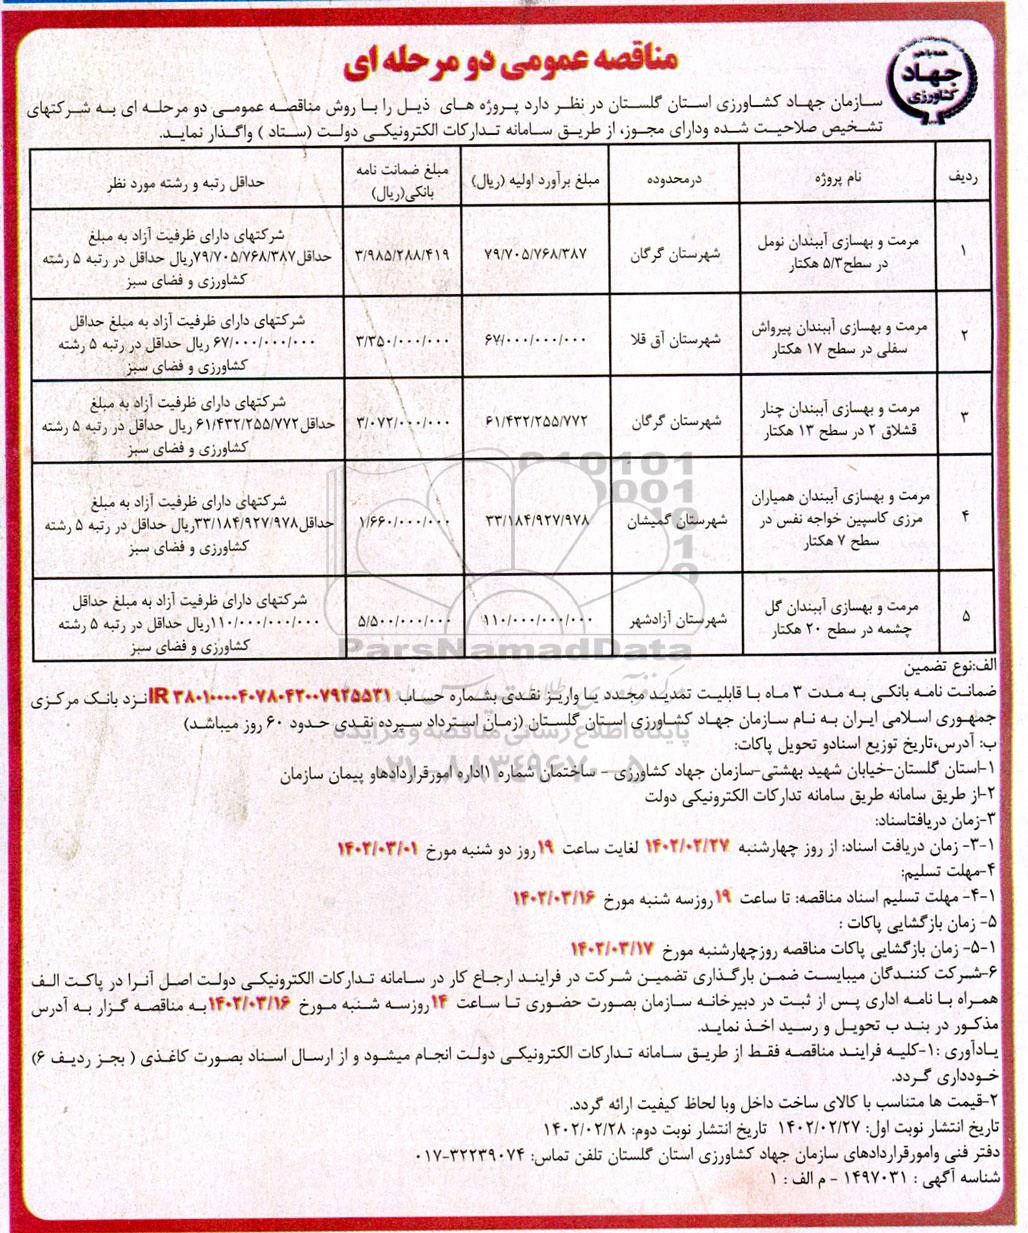 همه با هم
جهاد
کشاورزی
مناقصه عمومی دو مرحله ای
سازمان جهاد کشاورزی استان گلستان در نظر دارد پروژه های ذیل را با روش مناقصه عمومی دو مرحله ای به شرکتهای
تشخیص صلاحیت شده ودارای مجوز، از طریق سامانه تدارکات الکترونیکی دولت (ستاد ) واگذار نماید.
ردیف
نام پروژه
درمحدوده
مبلغ برآورد اولیه (ریال)
مبلغ ضمانت نامه
بانکی(ریال)
حداقل رتبه و رشته مورد نظر
۱
مرمت و بهسازی آببندان نومل
در سطح۵/۳ هکتار
شهرستان گرگان
۷۹/۷۰۵/۷۶۸/۳۸۷
۳/۹۸۵/۲۸۸/۴۱۹
شرکتهای دارای ظرفیت آزاد به مبلغ
حداقل۷۹/۷۰۵/۷۶۸/۳۸۷ریال حداقل در رتبه ۵ رشته
کشاورزی و فضای سبز
۲
مرمت و بهسازی آببندان پیرواش
سفلی در سطح ۱۷ هکتار
شهرستان آق قلا
۶۷/۰۰۰/۰۰۰/۰۰۰
۳/۳۵۰/۰۰۰/۰۰۰
شرکتهای دارای ظرفیت آزاد به مبلغ حداقل
۶۷/۰۰۰/۰۰۰/۰۰۰ ریال حداقل در رتبه ۵ رشته
کشاورزی و فضای سبز
۳
مرمت و بهسازی آببندان چنار
قشلاق ۲ در سطح ۱۳ هکتار
شهرستان گرگان
۶۱/۴۳۲/۲۵۵/۷۷۲
۳/۰۷۲/۰۰۰/۰۰۰
شرکتهای دارای ظرفیت آزاد به مبلغ
حداقل۶۱/۴۳۲/۲۵۵/۷۷۲ ریال حداقل در رتبه ۵ رشته
کشاورزی و فضای سبز
۴
مرمت و بهسازی آببندان همیاران
مرزی کاسپین خواجه نفس در
سطح ۷ هکتار
شهرستان گمیشان
۳۳/۱۸۴/۹۲۷/۹۷۸
۱/۶۶۰/۰۰۰/۰۰۰
شرکتهای دارای ظرفیت آزاد به مبلغ
حداقل۳۳/۱۸۴/۹۲۷/۹۷۸ریال حداقل در رتبه ۵ رشته
کشاورزی و فضای سبز
۵
مرمت و بهسازی آببندان گل
چشمه در سطح ۲۰ هکتار
شهرستان آزادشهر
۱۱۰/۰۰۰/۰۰۰/۰۰۰
۵/۵۰۰/۰۰۰/۰۰۰
شرکتهای دارای ظرفیت آزاد به مبلغ حداقل
۱۱۰/۰۰۰/۰۰۰/۰۰۰ریال حداقل در رتبه ۵ رشته
کشاورزی و فضای سبز
ParsNamadData
الف:نوع تضمین
ضمانت نامه بانکی به مدت ۳ ماه با قابلیت تمدید مجدد یا واریز نقدی بشماره حساب IR ۳۸۰۱۰۰۰۰۴۰۷۸۰۴۲۰۰۷۹۲۵۵۳۱نزد بانک مرکزی
جمهوری اسلامی ایران به نام سازمان جهاد کشاورزی استان گلستان (زمان استرداد سپرده نقدی حدود ۶۰ روز میباشد)
پایگاه اطلاع رسانی مناقصه و مزایده
ب: آدرس،تاریخ توزیع اسنادو تحویل پاکات:
۱-استان گلستان-خیابان شهید بهشتی-سازمان جهاد کشاورزی - ساختمان شماره ۱اداره امورقراردادهاو پیمان سازمان
۲-از طریق سامانه طریق سامانه تدارکات الکترونیکی دولت
۳-زمان دریافتاسناد:
۳-۱- زمان دریافت اسناد: از روز چهارشنبه ۱۴۰۲/۰۲/۲۷ لغایت ساعت ۱۹روز دو شنبه مورخ ۱۴۰۲/۰۳/۰۱
۴-مهلت تسلیم:
۴-۱- مهلت تسلیم اسناد مناقصه: تا ساعت ۱۹روزسه شنبه مورخ ۱۴۰۲/۰۳/۱۶
۵- زمان بازگشایی پاکات :
۵-۱- زمان بازگشایی پاکات مناقصه روزچهارشنبه مورخ ۱۴۰۲/۰۳/۱۷
۶-شرکت کنندگان میبایست ضمن بارگذاری تضمین شرکت در فرایند ارجاع کار در سامانه تدارکات الکترونیکی دولت اصل آنرا در پاکت الف
همراه با نامه اداری پس از ثبت در دبیرخانه سازمان بصورت حضوری تا ساعت ۱۴روزسه شنبه مورخ ۱۴۰۲/۰۳/۱۶به مناقصه گزار به آدرس
مذکور در بند ب تحویل و رسید اخذ نماید.
یادآوری :۱-کلیه فرایند مناقصه فقط از طریق سامانه تدارکات الکترونیکی دولت انجام میشود و از ارسال اسناد بصورت کاغذی ( بجز ردیف ۶)
خودداری گردد.
۲-قیمت ها متناسب با کالای ساخت داخل وبا لحاظ کیفیت ارائه گردد.
تاریخ انتشار نوبت اول: ۱۴۰۲/۰۲/۲۷ تاریخ انتشار نوبت دوم: ۱۴۰۲/۰۲/۲۸
دفتر فنی وامورقراردادهای سازمان جهاد کشاورزی استان گلستان تلفن تماس: ۳۲۲۳۹۰۷۴-۰۱۷
شناسه آگهی : ۱۴۹۷۰۳۱ - م الف : ۱